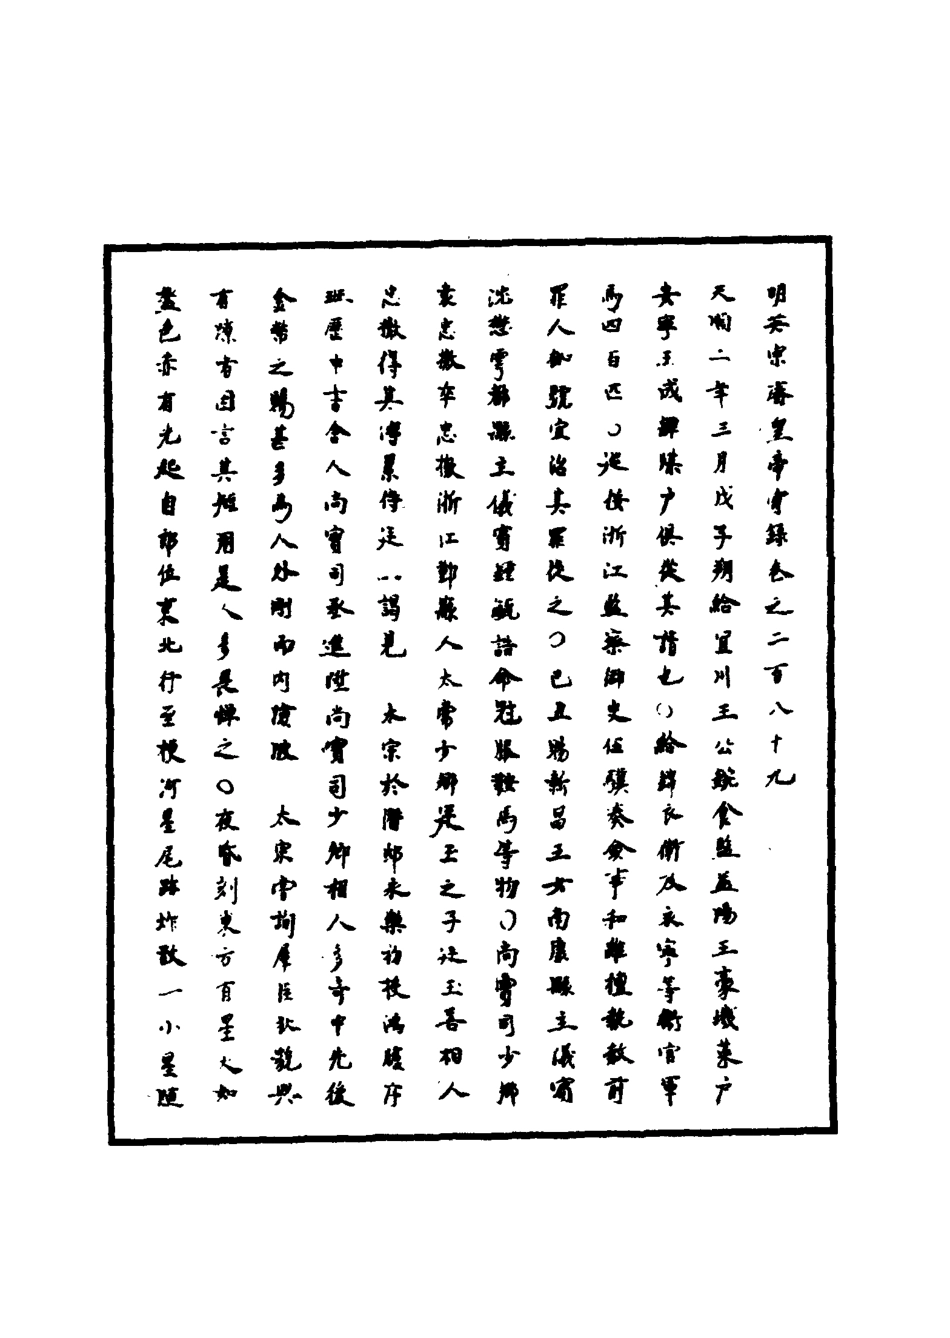 明英宗睿皇帝實錄卷之二百八十九
天順二年三月戊子朔給宜川王公鋺食鹽益陽王豪墭菜户
安寧王成鍷牒户俱從其請也○給錦衣衛及永寧等衛官軍
馬四百匹○巡按浙江監察御史伍驥奏僉事和維擅執赦前
罪人枷號宜治其罪從之○己丑賜新昌王女南康縣主儀賓
沈懋雩都縣主儀賓鍾毓誥命冠服鞍馬等物○尚寶司少卿
袁忠徹卒忠徹浙江鄞縣人太常少卿廷玉之子廷玉善相人
忠徹得其傳累侍廷以謁見 太宗於潛邸永樂初授鴻臚序
班歷中書舍人尚寶司丞進陞尚寶司少卿相人多奇中先後
金幣之賜甚多為人外剛而内險陂 太宗嘗詢羣臣於魏與
有隙者因言其短用是人多畏憚之○夜昏刻東方有星大如
盞色赤有光起自郎位東北行至梗河星尾跡炸散一小星隨